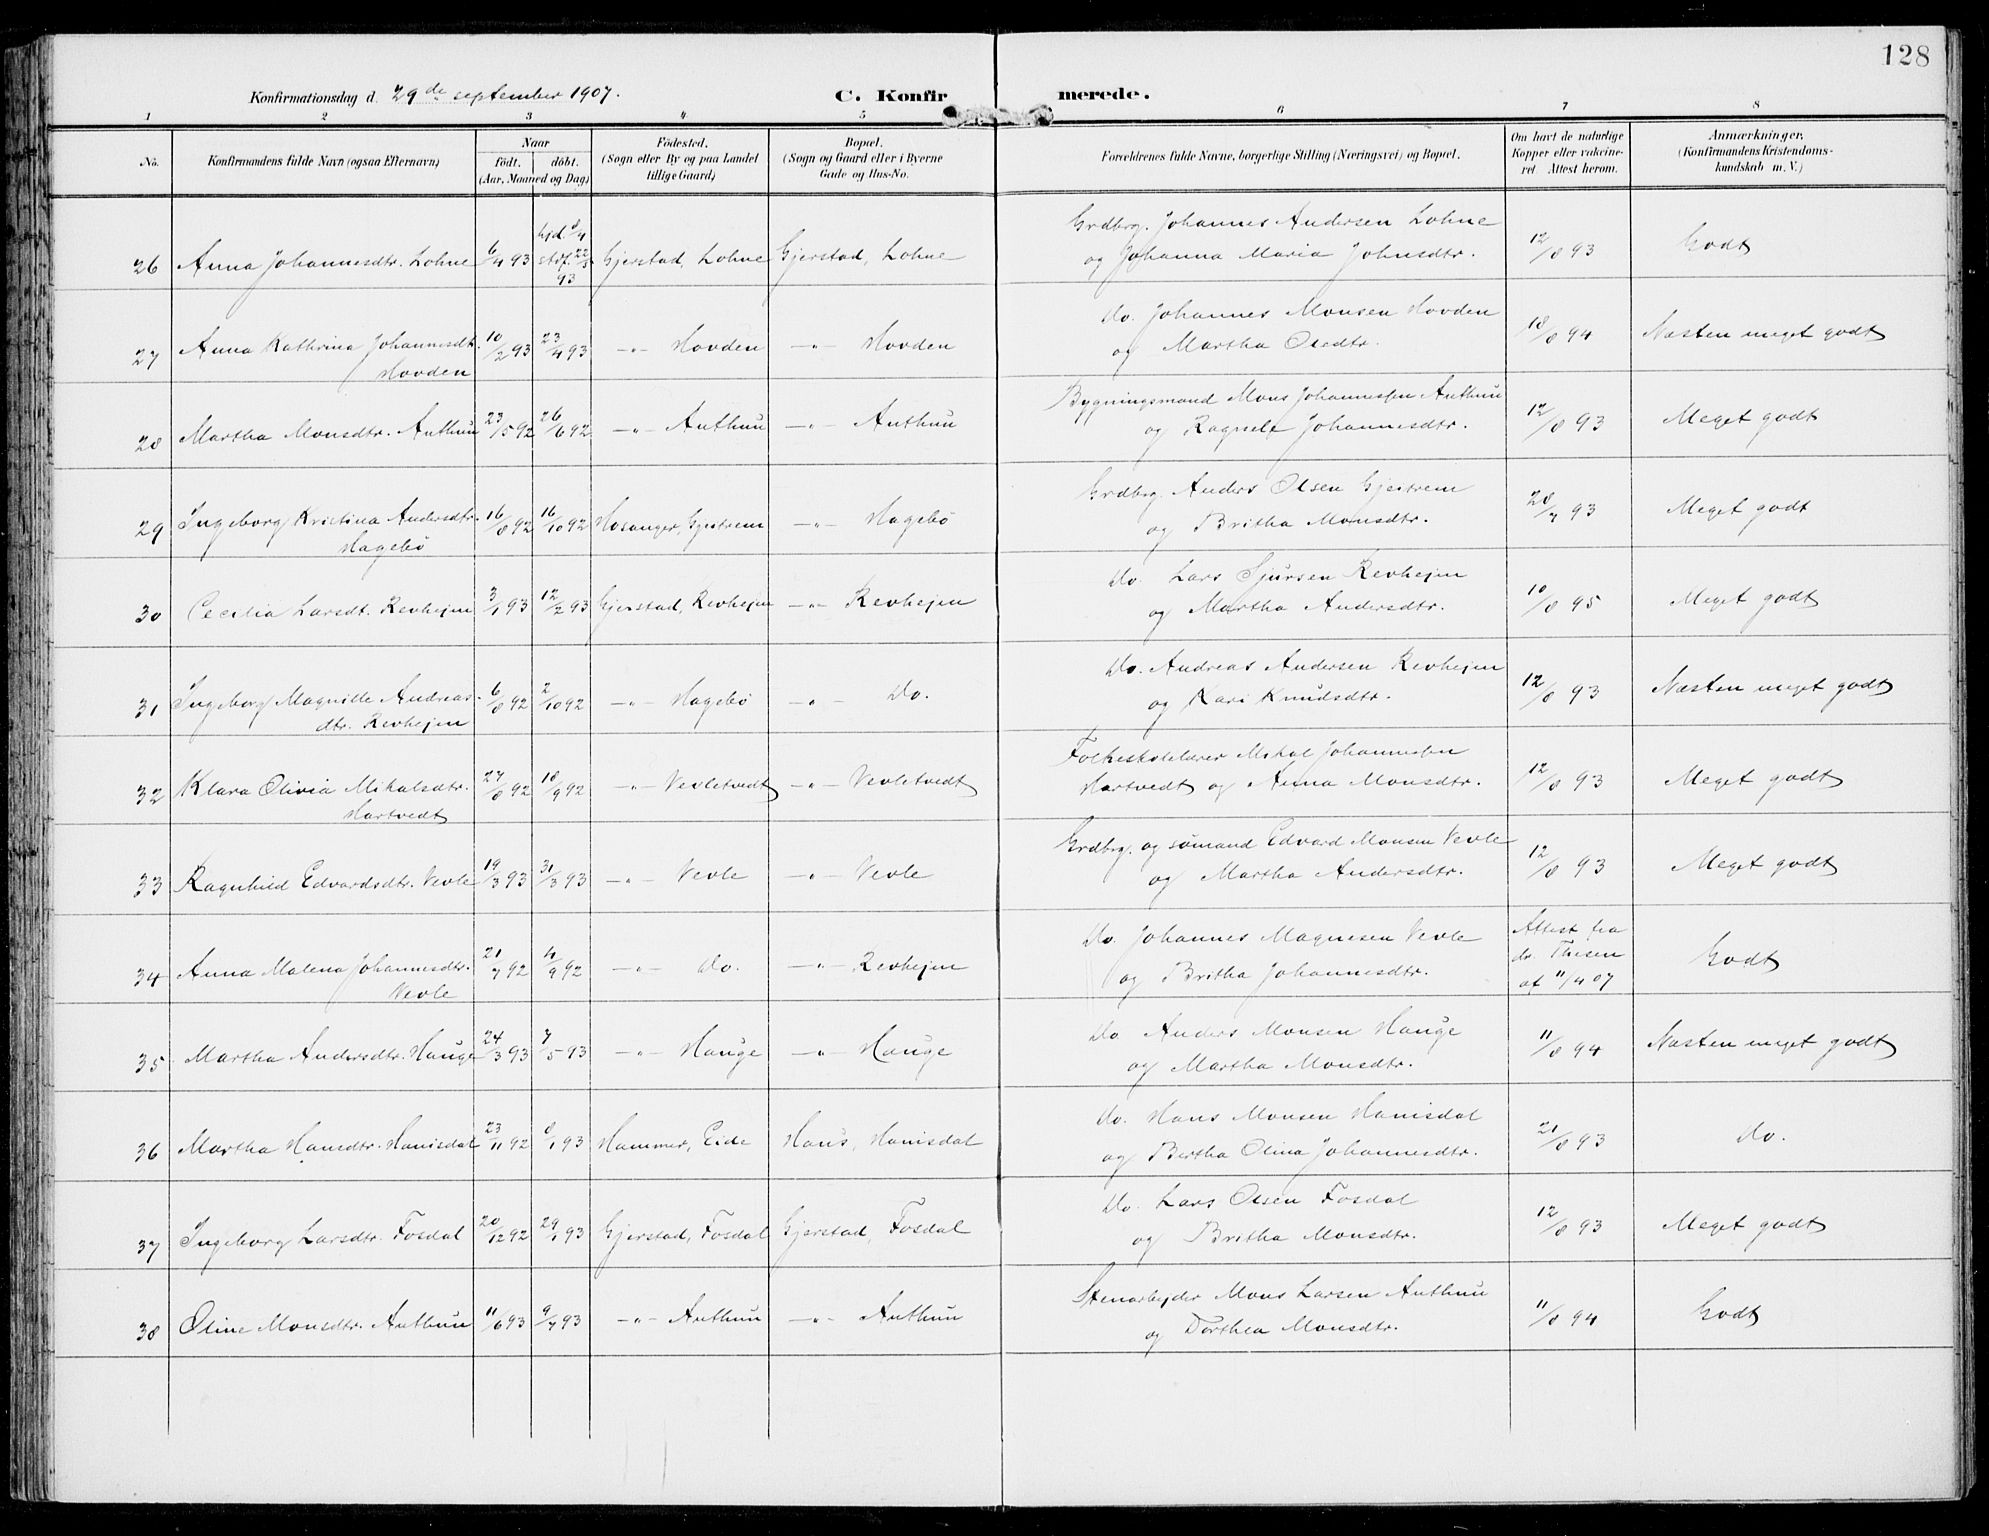 128
Konfirmationsdag d. 29de september 1907. C. Konfirmerede.
1 2 3 4 5 6 7 8
No. Konfirmandens fulde Navn (ogsaa Efternavn) Naar født. døbt. (Aar, Maaned og Dag) Fødested. (Sogn eller By og paa Landet tillige Gaard) Bopæl. (Sogn og Gaard eller i Byerne Gade og Hus-No. Forældrenes fulde Navne, borgerlige Stilling (Næringsvei) og Bopæl. Om havt de naturlige Kopper eller vakcineret. Attest herom. Anmærkninger. (Konfirmandens Kristendomskundskab m. V.)
26 Anna Johannesdtr. Lohne 6/4 93 hjd. 8/4 stdf. 22/5 93 Gjerstad, Lohne Gjerstad, Lohne Grdbrg. Johannes Andersen Lohne
og Johanna Maria Johnsdtr. 12/8 93 Godt
27 Anna Kathrina Johannesdt. 10/2 93 23/4 93 —"— Hovden —"— Hovden do. Johannes Monsen Hovden
Hovden og Martha Olsdtr. 18/8 94 Næsten meget godt
28 Martha Monsdtr. Authun 23/5 92 26/6 92 —"— Authun —"— Authun Bygningsmand Mons Johannessen Authun
og Ragnele Johannesdtr. 12/8 93 Meget godt
29 Ingeborg Kristina Andersdtr. 16/8 92 16/10 92 Hosanger, Gjestrem —"— Hagebø Grdbrg. Anders Olsen Gjestrem
Hagebø og Britha Monsdtr. 28/7 93 Meget godt
30 Cecilia Larsdt. Revhejen 3/1 93 12/2 93 Gjerstad, Revhejen —"— Revhejen do. Lars Sjursen Revhejen
og Martha Andersdtr. 10/8 95 Meget godt
31 Ingeborg Magnille Andreas- 6/8 92 2/10 92 —"— Hagebø —"— Do. Do. Andreas Andersen Revhejen
dtr. Revhejen og Kari Knudsdtr. 12/8 93 Næsten meget godt
32 Klara Olivia Mikalsdtr. 27/8 92 18/9 92 —"— Vevletvedt —"— Vevletvedt Folkeskolelærer Mikal Johannessen
Hartvedt Hartvedt og Anna Monsdtr. 12/8 93 Meget godt
33 Ragnhild Edvardsdtr. Vevle 19/3 93 31/3 93 —"— Vevle —"— Vevle Grdbrg. og sømand Edvard Monsen Vevle
og Martha Andersdtr. 12/8 93 Meget godt
34 Anna Malena Johannesdtr. 21/7 92 4/9 92 —"— Do. —"— Revhejen Do. Johannes Magnesen Vevle
Vevle og Britha Johannesdtr. Attest fra dr. Thesen af 11/4 07 Godt
35 Martha Andersdtr. Hauge 24/3 93 7/5 93 —"— Hauge —"— Hauge Do. Anders Monsen Hauge
og Martha Monsdtr. 11/8 94 Næsten meget godt
36 Martha Hansdtr. Hanisdal 23/11 92 8/1 93 Hammer, Eide Haus, Hanisdal do. Hans Monsen Hanisdal
og Bertha Olina Johannesdtr. 21/8 93 do.
37 Ingeborg Larsdtr. Fosdal 20/12 92 29/1 93 Gjerstad, Fosdal Gjerstad, Fosdal Do. Lars Olsen Fosdal
og Britha Monsdtr. 12/8 93 Meget godt
38 Oline Monsdtr. Authun 11/6 93 9/7 93 —"— Authun —"— Authun Stenarbejder Mons Larsen Authun
og Dorthea Monsdtr. 11/8 94 Godt